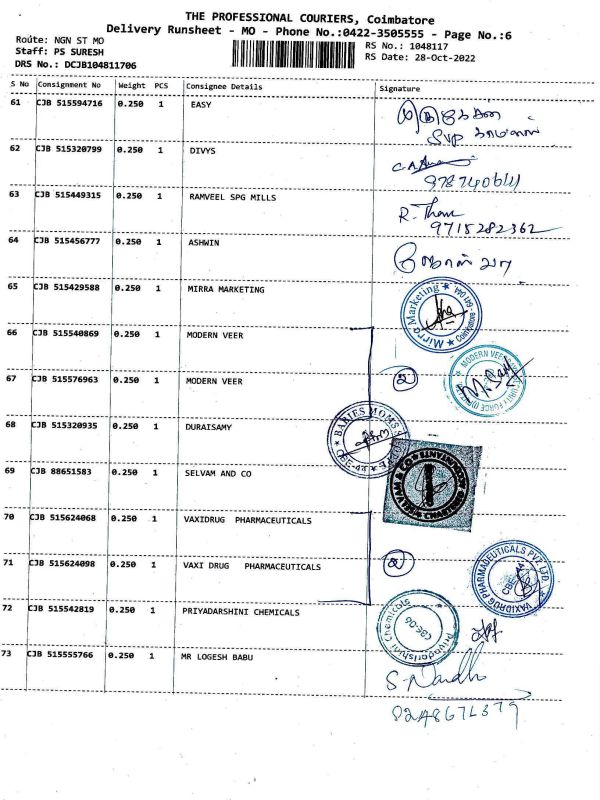 THE PROFESSIONAL COURIERS, Coimbatore
Delivery Runsheet - MO - Phone No.:0422-3505555 - Page No.:6
Route: NGN ST MO
RS No.: 1048117
Staff: PS SURESH
RS Date: 28-Oct-2022
DRS No.: DCJB104811706
S No Consignment No Weight PCS Consignee Details Signature
61 CJB 515594716 0.250 1 EASY
62 CJB 515320799 0.250 1 DIVYS
63 CJB 515449315 0.250 1 RAMVEEL SPG MILLS
R. Tham
9715282362
64 CJB 515456777 0.250 1 ASHWIN
65 CJB 515429588 0.250 1 MIRRA MARKETING
Mirra Marketing
66 CJB 515540869 0.250 1 MODERN VEER
67 CJB 515576963 0.250 1 MODERN VEER
2
MODERN VEER
68 CJB 515320935 0.250 1 DURAISAMY
BABIES MOMS
69 CJB 88651583 0.250 1 SELVAM AND CO
SELVAM & CO
CHARTERED ACCOUNTANTS
70 CJB 515624068 0.250 1 VAXIDRUG PHARMACEUTICALS
71 CJB 515624098 0.250 1 VAXI DRUG PHARMACEUTICALS
2
VAXIDROG PHARMACEUTICALS PVT LTD
72 CJB 515542819 0.250 1 PRIYADARSHINI CHEMICALS
Priyadarishini Chemicals
CBE-06
73 CJB 515555766 0.250 1 MR LOGESH BABU
S. Nandh